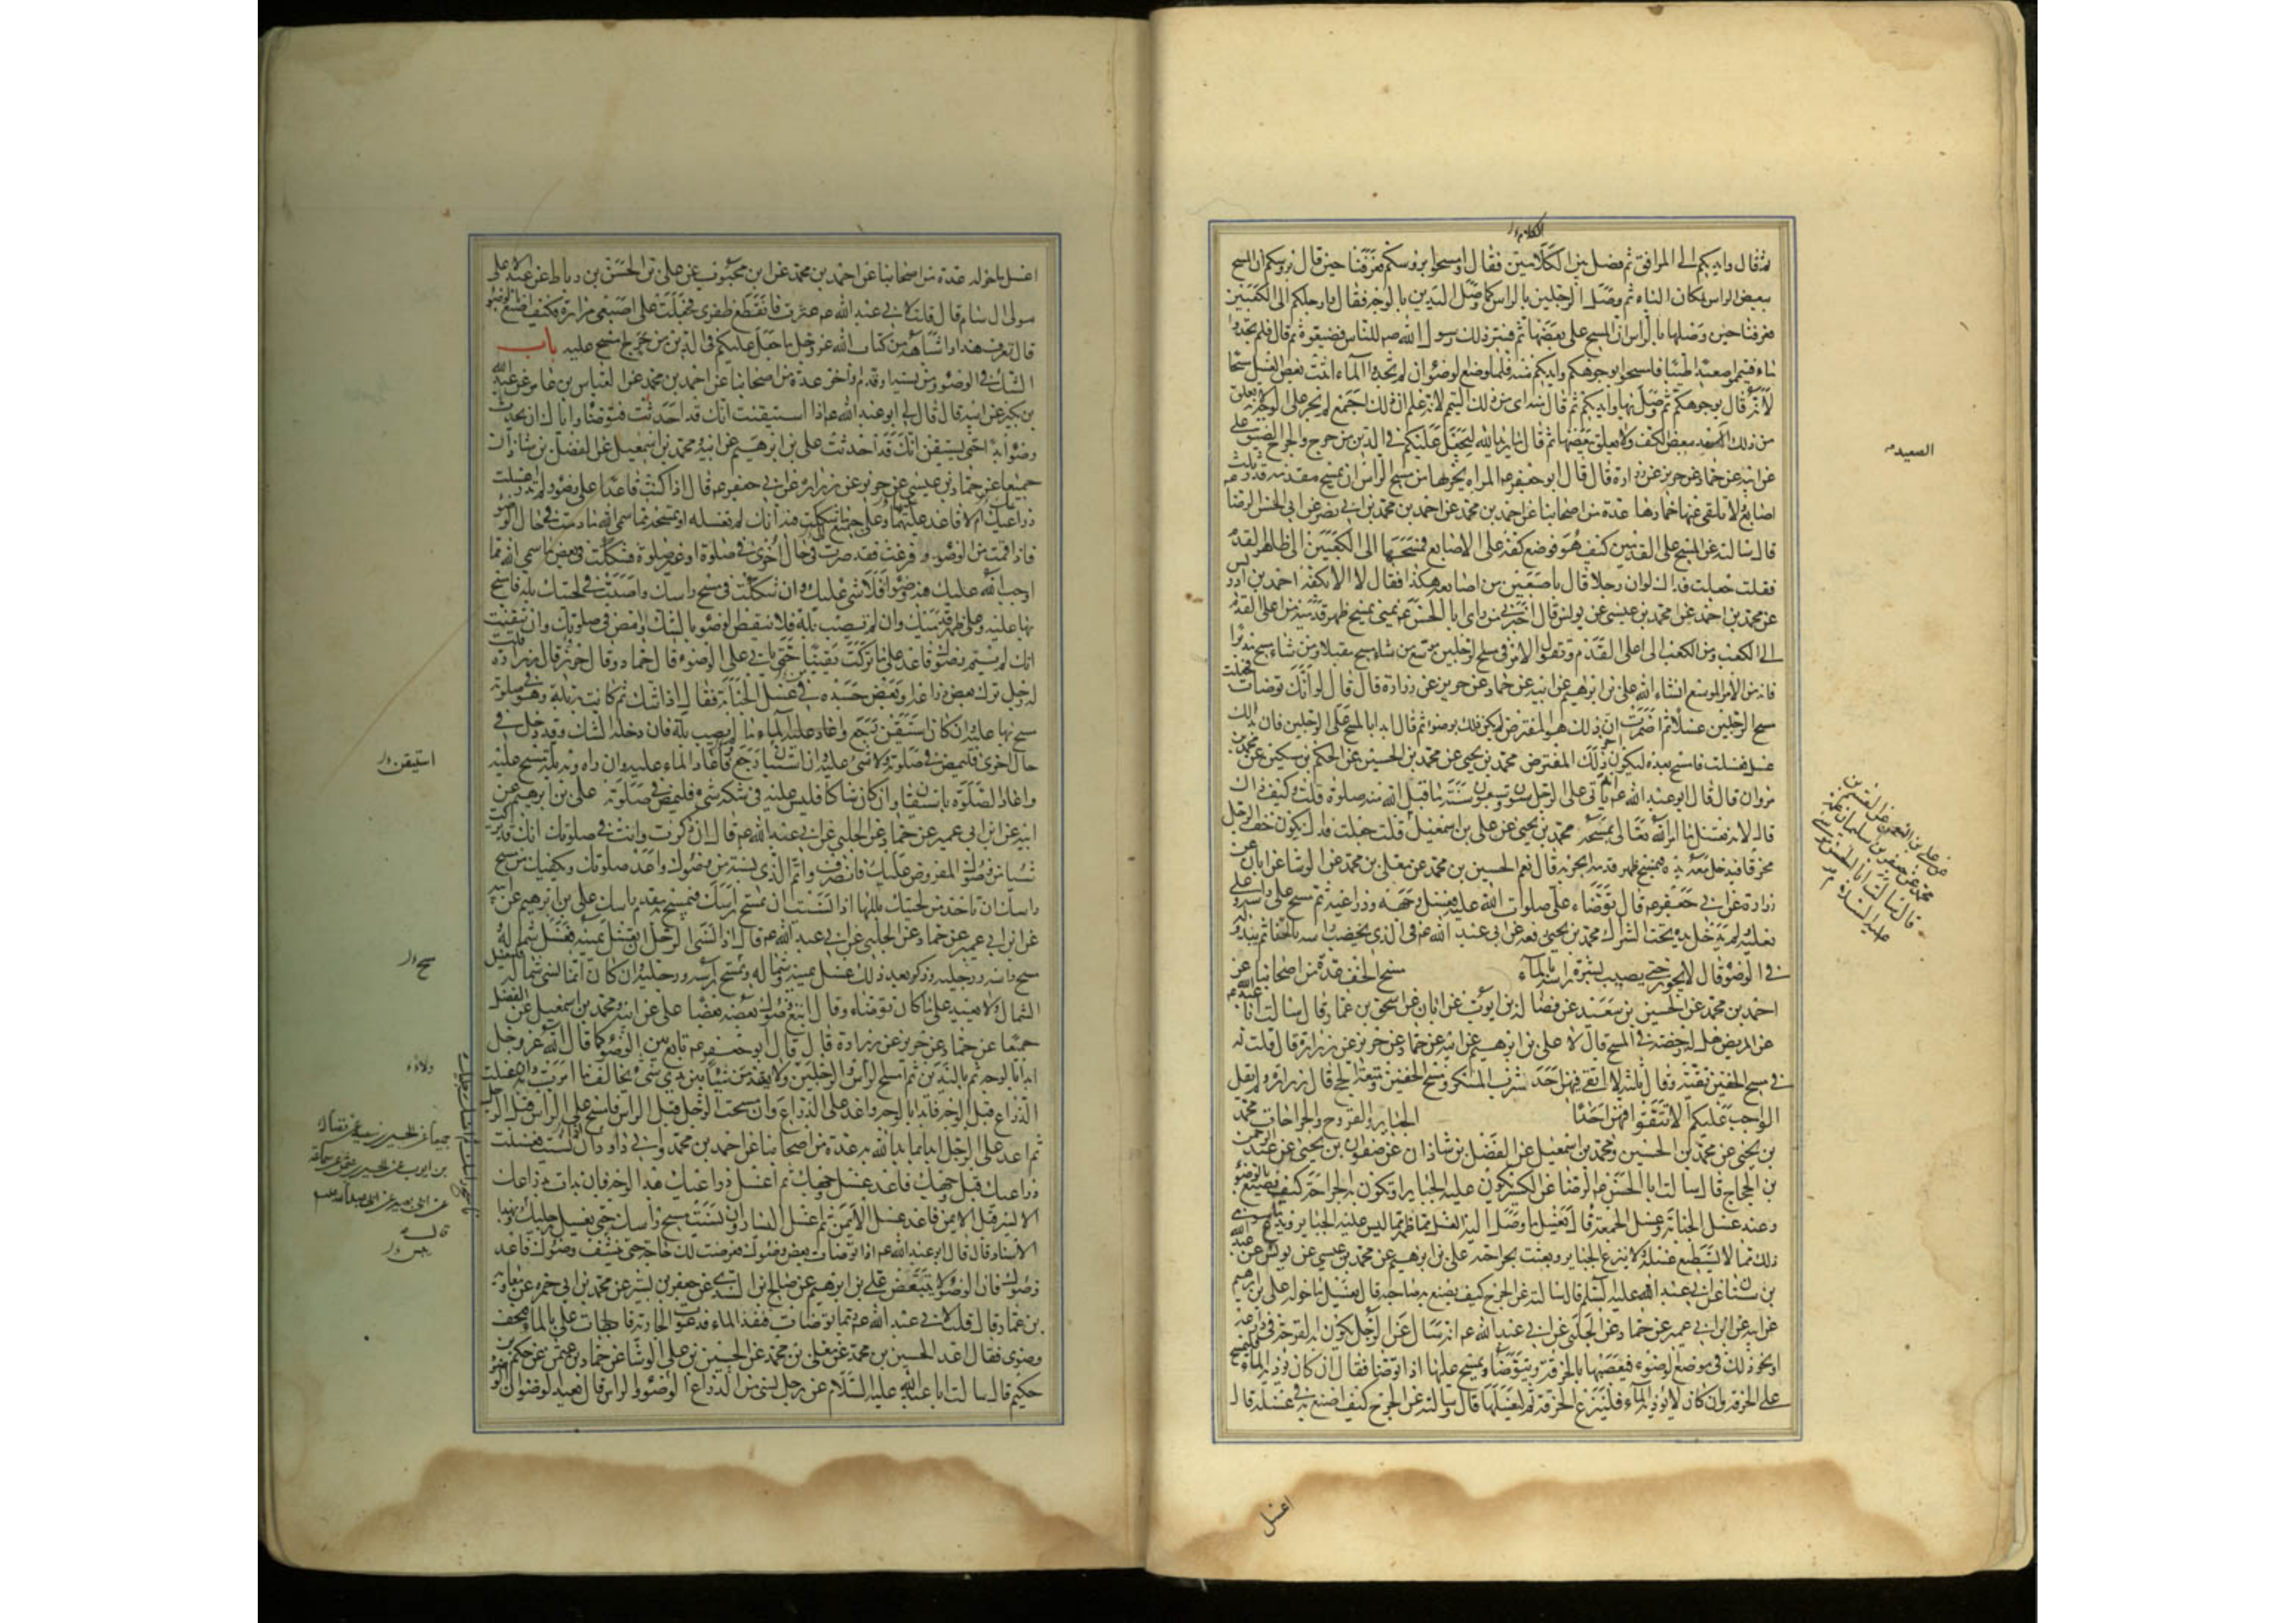 الكلام ر
ثم قال وايديكم الى المرافق ثم فصل بين الكلامين فقال وامسحوا برؤسكم فعرفنا حين قال برؤسكم ان المسح
ببعض الراس لمكان الباء ثم وصل الرجلين بالراس كما وصل اليدين بالوجه فقال وارجلكم الى الكعبين
فعرفنا حين وصلها بالراس ان المسح على بعضها ثم فسر ذلك رسول الله صم للناس فضيعوه ثم قال فلم تجدوا
ماء فتيمموا صعيدا طيبا فامسحوا بوجوهكم وايديكم منه فلما وضع الوضوء ان لم تجدوا الماء اثبت بعض الغسل مسحا
لانه قال بوجوهكم ثم وصل بها وايديكم ثم قال منه اى من ذلك التيمم لانه علم ان ذلك اجمع لم يجر على الوجه لانه يعلق
من ذلك ببعض الكف ولا يعلق ببعضها ثم قال ما يريد الله ليجعل عليكم فى الدين من حرج والحرج الضيق على
عن ابيه عن حماد عن حريز عن زرارة قال قال ابو جعفر عم المراة يجزيها من مسح الراس ان تمسح مقدمه قدر ثلث
اصابع ولا تلقى عنها خمارها عدة من اصحابنا عن احمد بن محمد عن احمد بن محمد بن ابى نصر عن ابى الحسن الرضا عم
قال سالته عن المسح على القدمين كيف هو فوضع كفه على الاصابع فمسحها الى الكعبين الى ظاهر القدم
فقلت جعلت فداك لو ان رجلا قال باصبعين من اصابعه هكذا فقال لا الا بكفه احمد بن ادريس
عن محمد بن احمد عن محمد بن عيسى عن يونس قال اخبرنى من راى ابا الحسن عم بمنى يمسح ظهر قدميه من اعلى القدم
الى الكعب ومن الكعب الى اعلى القدم ويقول الامر فى مسح الرجلين موسع من شاء مسح مقبلا ومن شاء مسح مدبرا
فانه من الامر الموسع انشاء الله على بن ابرهيم عن ابيه عن حماد عن حريز عن زرارة قال قال لو انك توضات فجعلت
مسح الرجلين غسلا ثم اضمرت ان ذلك هو المفترض لم يكن ذلك بوضوء ثم قال ابدا بالمسح على الرجلين فان بدا لك
غسل فغسلت فامسح بعده ليكون اخر ذلك المفترض محمد بن يحيى عن محمد بن الحسين عن الحكم بن مسكين عن محمد بن
مروان قال قال ابو عبد الله عم انه ياتى على الرجل ستون وسبعون سنة ما قبل الله منه صلوة قلت وكيف ذاك
قال لانه يغسل ما امر الله تعالى بمسحه محمد بن يحيى عن على بن اسمعيل قلت جعلت فداك يكون خف الرجل
مخرقا فيدخل يده فيمسح ظهر قدمه ايجزيه قال نعم الحسين بن محمد عن معلى بن محمد عن الوشا عن ابان عن
زرارة عن ابى جعفر عم قال توضاء على صلوات الله عليه فغسل وجهه وذراعيه ثم مسح على راسه وعلى
نعليه ولم يدخل يده تحت الشراك محمد بن يحيى رفعه عن ابى عبد الله عم فى الذى يخضب راسه بالحنا ثم يبدو له
فى الوضوء قال لا يجوز حتى يصيب بشرة راسه بالماء مسح الخف عدة من اصحابنا عن
احمد بن محمد عن الحسين بن سعيد عن فضالة بن ايوب عن ابان عن اسحق بن عمار قال سالت ابا عبد الله عم
عن المريض هل له رخصة فى المسح قال لا على بن ابرهيم عن ابيه عن حماد عن حريز عن زرارة قال قلت له
فى مسح الخفين تقية فقال ثلثة لا اتقى فيهن احدا شرب المسكر ومسح الخفين ومتعة الحج قال زرارة ولم يقل
الواجب عليكم الا تتقوا فيهن احدا الجبائر والقروح والجراحات محمد
بن يحيى عن محمد بن الحسين ومحمد بن اسمعيل عن الفضل بن شاذان عن صفوان بن يحيى عن عبد الرحمن
بن الحجاج قال سالت ابا الحسن عم الرضا عن الكسير تكون عليه الجباير او تكون به الجراحة كيف يصنع بالوضوء
وعند غسل الجنابة وغسل الجمعة قال يغسل ما وصل اليه الغسل مما ظهر مما ليس عليه الجباير ويدع ما سوى
ذلك مما لا يستطيع غسله ولا ينزع الجباير ويعبث بجراحته على بن ابرهيم عن محمد بن عيسى عن يونس عن عبد الله
بن سنان عن ابى عبد الله عليه السلم قال سالته عن الجرح كيف يصنع به صاحبه قال يغسل ما حوله على بن ابرهيم
عن ابيه عن ابن ابى عمير عن حماد عن الحلبى عن ابى عبد الله عم انه سال عن الرجل يكون به القرحة فى ذراعه
او نحو ذلك فى موضع الوضوء فيعصبها بالخرقة ويتوضا ويمسح عليها اذا توضا فقال ان كان يؤذيه الماء فليمسح
على الخرقة وان كان لا يؤذيه الماء فلينزع الخرقة ثم ليغسلها قال وسالته عن الجرح كيف اصنع به فى غسله قال
اغسل
الصعيد
محمد عن جعفر بن سليمان عمه
قال سالت ابا الحسن موسى
عليه السلام
اغسل ما حوله عدة من اصحابنا عن احمد بن محمد عن ابن محبوب عن على بن الحسن بن رباط عن عبد الاعلى
مولى ال سام قال قلت لابى عبد الله عم عثرت فانقطع ظفرى فجعلت على اصبعى مرارة فكيف اصنع بالوضوء
قال تعرف هذا واشباهه من كتاب الله عز وجل ما جعل عليكم فى الدين من حرج امسح عليه باب
الشك فى الوضوء ومن نسيه او قدم واخر عدة من اصحابنا عن احمد بن محمد عن العباس بن عامر عن عبد الله
بن بكير عن ابيه قال قال لى ابو عبد الله عم اذا استيقنت انك قد احدثت فتوضا واياك ان تحدث
وضوءا ابدا حتى يستيقن انك قد احدثت على بن ابرهيم عن ابيه ومحمد بن اسمعيل عن الفضل بن شاذان
جميعا عن حماد بن عيسى عن حريز عن زرارة عن ابى جعفر عم قال اذا كنت قاعدا على وضوء ولم تدر اغسلت
ذراعيك ام لا فاعد عليهما وعلى جميع ما شككت فيه انك لم تغسله او تمسحه مما سمى الله ما دمت فى حال الوضوء
فاذا قمت من الوضوء وفرغت فقد صرت فى حال اخرى فى صلوة او غير صلوة فشككت فى بعض ما سمى الله مما
اوجب الله عليك فيه وضوءا فلا شىء عليك وان شككت فى مسح راسك واصبت فى لحيتك بلة فامسح
بها عليه وعلى ظهر قدميك وان لم تصب بلة فلا تنقض الوضوء بالشك وامض فى صلوتك وان تيقنت
انك لم تتم وضوئك فاعد على ما تركت يقينا حتى تاتى على الوضوء قال حماد وقال حريز قال زرارة قلت
له رجل ترك بعض ذراعه او بعض جسده فى غسل الجنابة فقال اذا شك ثم كانت به بلة وهو فى صلوته
مسح بها عليه وان كان استيقن رجع واعاد عليه الماء ما لم يصب بلة فان دخله الشك وقد دخل فى
حال اخرى فليمض فى صلوته ولا شىء عليه وان استبان رجع واعاد الماء عليه وان راه وبه بلة مسح عليه
واعاد الصلوة باستيقان وان كان شاكا فليس عليه فى شكه شىء فليمض فى صلوته على بن ابرهيم عن
ابيه عن ابن ابى عمير عن حماد عن الحلبى عن ابى عبد الله عم قال ان ذكرت وانت فى صلوتك انك قد تركت
شيئا من وضوئك المفروض عليك فانصرف واتم الذى نسيته من وضوئك واعد صلوتك ويكفيك من مسح
راسك ان تاخذ من لحيتك بللها اذا نسيت ان تمسح راسك فتمسح به مقدم راسك على بن ابرهيم عن ابيه
عن ابن ابى عمير عن حماد عن الحلبى عن ابى عبد الله عم قال اذا نسى الرجل ان يغسل يمينه فغسل شماله و
مسح راسه ورجليه وذكر بعد ذلك غسل يمينه وشماله ومسح راسه ورجليه وان كان انما نسى شماله فليغسل
الشمال ولا يعيد على ما كان توضاء وقال اتبع وضوئك بعضه بعضا على عن ابيه ومحمد بن اسمعيل عن الفضل
جميعا عن حماد عن حريز عن زرارة قال قال ابو جعفر عم تابع بين الوضوء كما قال الله عز وجل
ابدا بالوجه ثم باليدين ثم امسح الراس والرجلين ولا تقدمن شيئا بين يدى شىء تخالف ما امرت به وان غسلت
الذراع قبل الوجه فابدا بالوجه واعد على الذراع وان مسحت الرجل قبل الراس فامسح على الراس قبل الرجل
ثم اعد على الرجل ابدا بما بدا الله به عدة من اصحابنا عن احمد بن محمد وابى داود قال ان نسيت فغسلت
ذراعيك قبل وجهك فاعد غسل وجهك ثم اغسل ذراعيك بعد الوجه فان بدات بذراعك
الايسر قبل الايمن فاعد غسل الايمن ثم اغسل اليسار وان نسيت مسح راسك حتى تغسل رجليك وبهذا
الاسناد قال قال ابو عبد الله عم اذا توضات بعض وضوئك فعرضت لك حاجة حتى ينشف وضوئك فاعد
وضوئك فان الوضوء لا يتبعض على بن ابرهيم عن صالح بن السندى عن جعفر بن بشير عن محمد بن ابى حمزه عن معاوية
بن عمار قال قلت لابى عبد الله عم ربما توضات فنفد الماء فدعوت الجارية فابطات على بالماء فيجف
وضوئى فقال اعد الحسين بن محمد عن معلى بن محمد عن الحسن بن على الوشا عن حماد بن عثمن عن حكم بن
حكيم قال سالت ابا عبد الله عليه السلام عن رجل نسى من الذراع الوضوء والراس قال يعيد الوضوء ان الوضوء
استيقن ر
مسح ر
ولاء
جميعا عن الحسين بن سعيد عن فضالة
بن ايوب عن الحسين بن عثمن عن سماعة
عن ابى بصير عن ابى عبد الله عليه السلم
قال